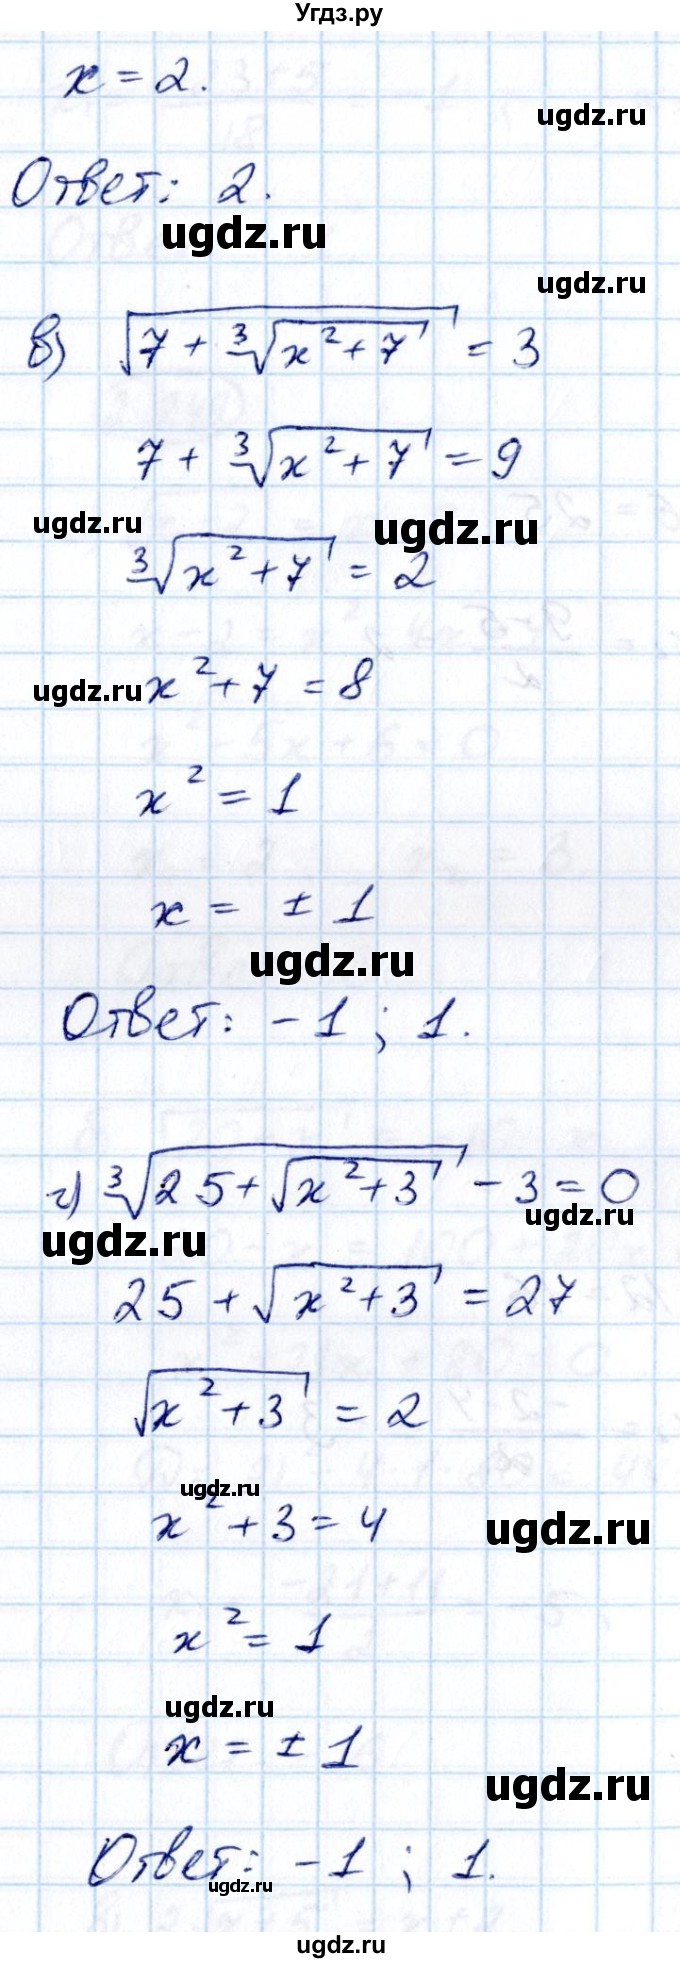 Угдз.ру
x = 2.
ugdz.ru
Ответ: 2.
ugdz.ru
ugdz.ru
в) √(7 + ∛(x² + 7)) = 3
7 + ∛(x² + 7) = 9
ugdz.ru
ugdz.ru
∛(x² + 7) = 2
ugdz.ru
x² + 7 = 8
x² = 1
x = ± 1
ugdz.ru
Ответ: -1 ; 1.
г) ∛(25 + √(x² + 3)) - 3 = 0
ugdz.ru
ugdz.ru
25 + √(x² + 3) = 27
√(x² + 3) = 2
ugdz.ru
x² + 3 = 4
ugdz.ru
x² = 1
ugdz.ru
x = ± 1
ugdz.ru
Ответ: -1 ; 1.
ugdz.ru
ugdz.ru